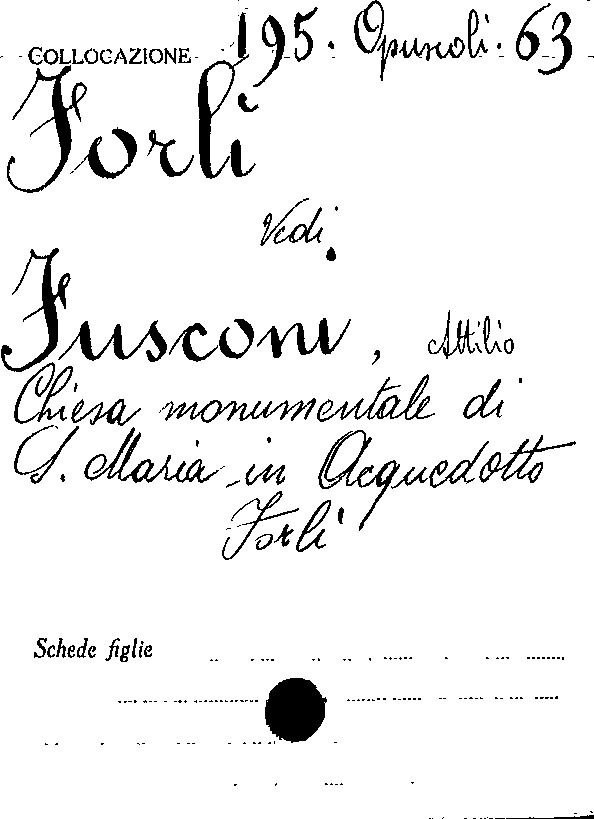 COLLOCAZIONE 195. Opuscoli. 63
Forlì
Vedi
Fusconi, Attilio
Chiesa monumentale di
S. Maria in Acquedotto
Forlì
Schede figlie